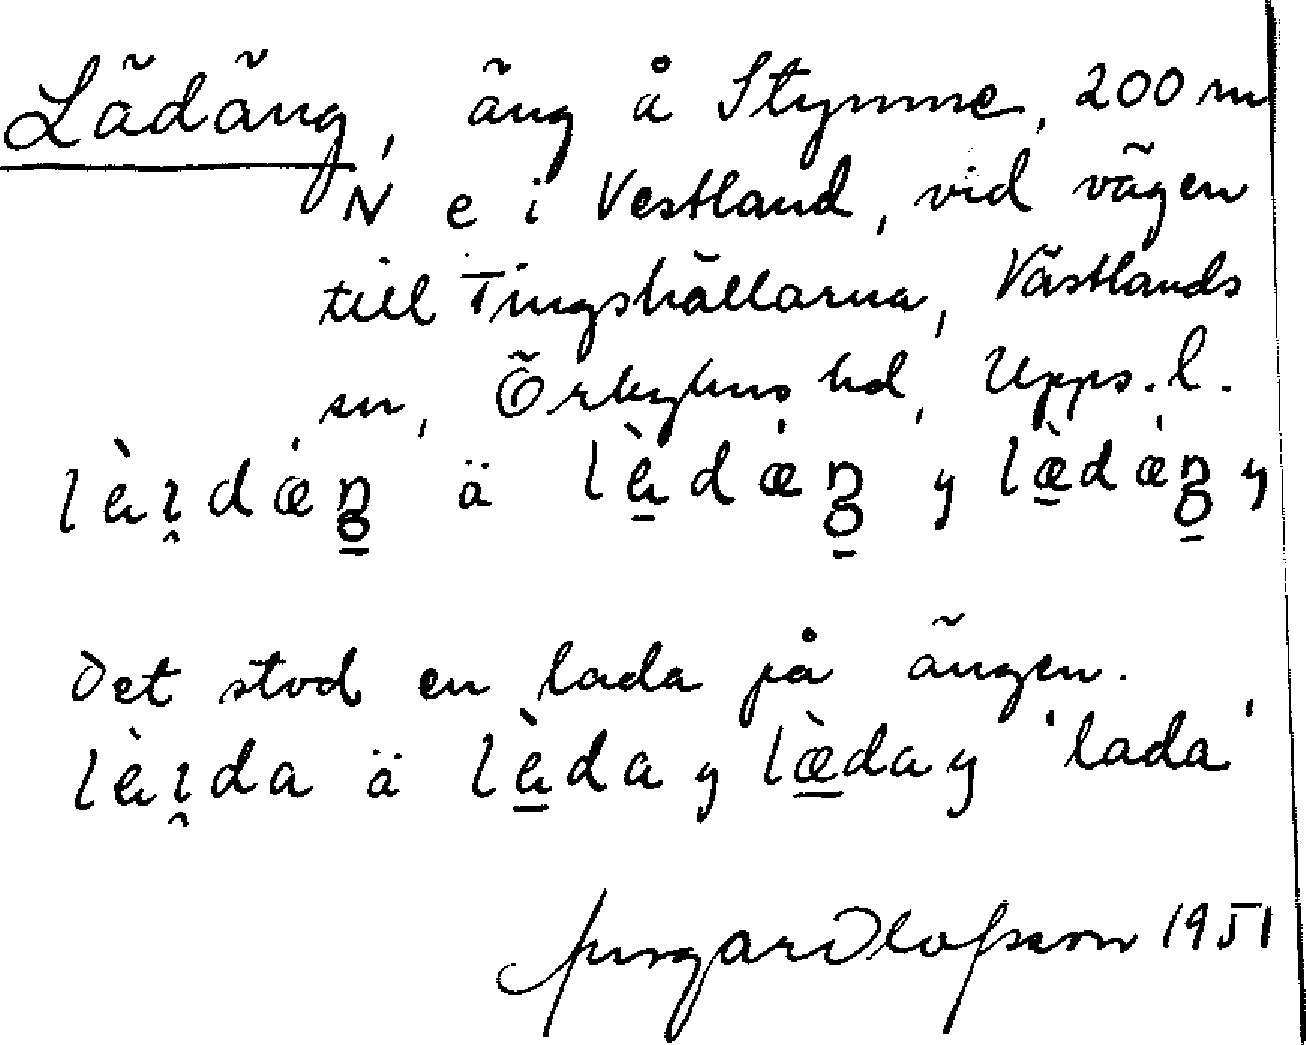 Lädäng, äng å Stymme, 200 m
N e i Vestland, vid vägen
till Tingshällarna, Västlands
sn, Örbyhus hd, Upps. l.
lèi̯dæŋ ä lèdæŋ y læ̀dæŋ y
Det stod en lada på ängen.
lèi̯da ä lèda y læ̀da y 'lada'
Olofsson 1951